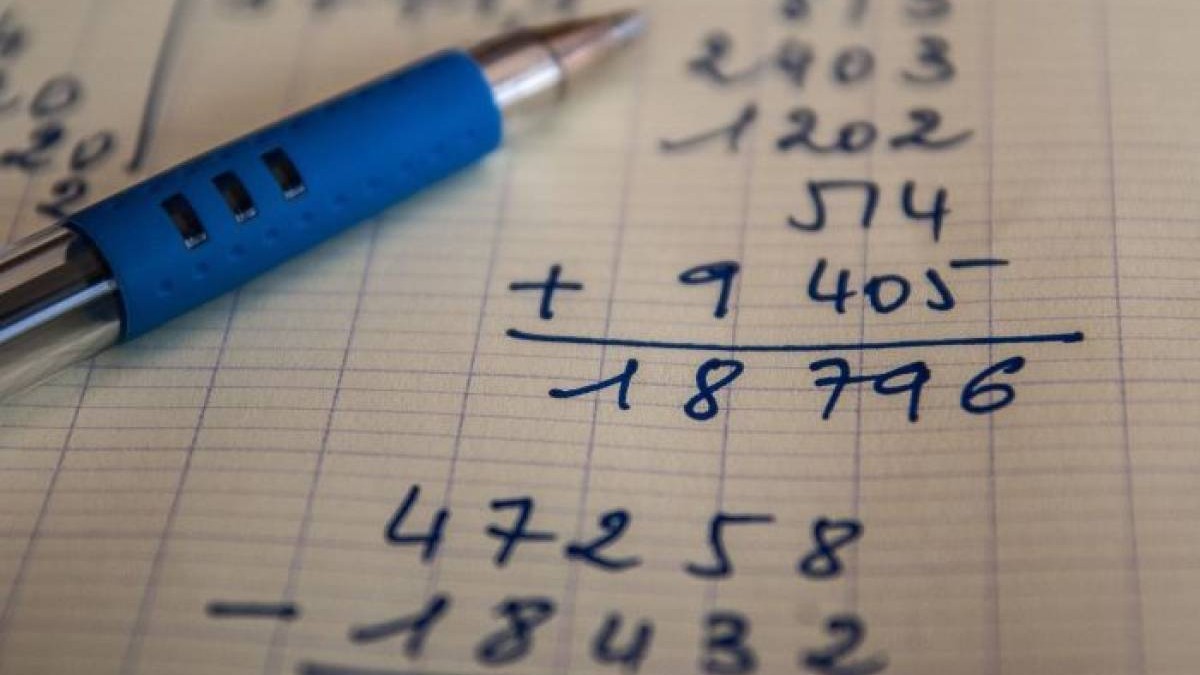 20
2
2403
1202
514
+ 9 405
18 796
47258
- 18432